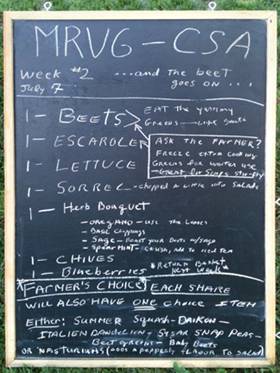 MRVG - CSA
Week #2 ...and the beet
July 7 goes on ...
1 - BEETS EAT the yummy
Greens - like
1 - ESCAROLE ASK the FARMER?
Freeze extra cooking
Greens for winter use
1 - LETTUCE Great for soups
1 - SORREL - chopped into salads
1 - Herb Bouquet
- OREGANO - use the leaves
- Basil clippings
- Sage - Roast your beets w/ sage
- Spearmint - add to iced tea
1 - CHIVES * Return Basket
1 - Blueberries next week *
FARMER'S CHOICE EACH SHARE
will ALSO HAVE ONE choice ITEM
Either: SUMMER SQUASH - DAIKON -
ITALIEN DANDELION - SUGAR SNAP PEAS -
Beet greens - Baby Beets
OR NASTURIUMS (adds a peppery flavour to salad)